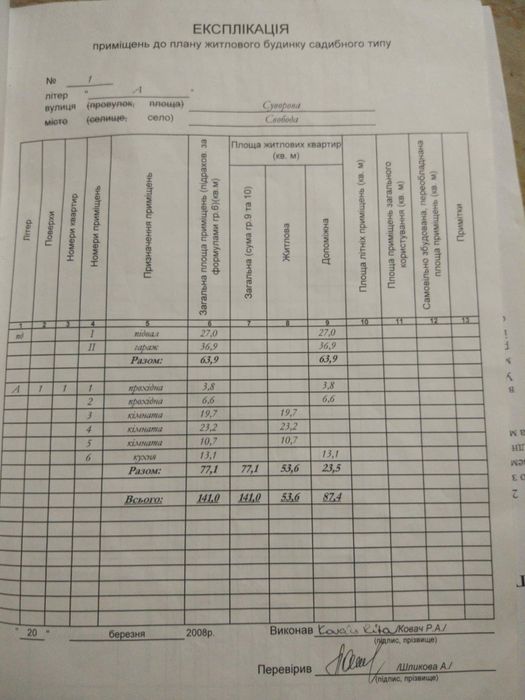 ЕКСПЛІКАЦІЯ
приміщень до плану житлового будинку садибного типу
№ 1
літер " А "
вулиця (провулок, площа) Суворова
місто (селище, село) Свобода
Літер Поверхи Номери квартир Номери приміщень Призначення приміщень Загальна площа приміщень (підрахов. за формулами гр.6)(кв.м) Площа житлових квартир (кв. м) Загальна (сума гр.9 та 10) Житлова Допоміжна Площа літніх приміщень (кв. м) Площа приміщень загального користування (кв. м) Самовільно збудована, переобладнана площа приміщень (кв. м) Примітки
1 2 3 4 5 6 7 8 9 10 11 12 13
пд I підвал 27,0 27,0
II гараж 36,9 36,9
Разом: 63,9 63,9
А 1 1 1 прохідна 3,8 3,8
2 прохідна 6,6 6,6
3 кімната 19,7 19,7
4 кімната 23,2 23,2
5 кімната 10,7 10,7
6 кухня 13,1 13,1
Разом: 77,1 77,1 53,6 23,5
Всього: 141,0 141,0 53,6 87,4
" 20 " березня 2008р. Виконав /Ковач Р.А/
(підпис, прізвище)
Перевірив /Шпикова А./
/(підпис, прізвище)